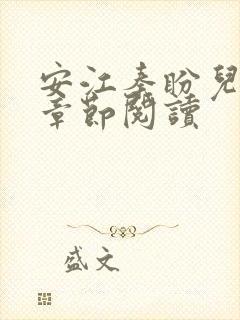 安江秦盼兒
章節閱讀
盛文